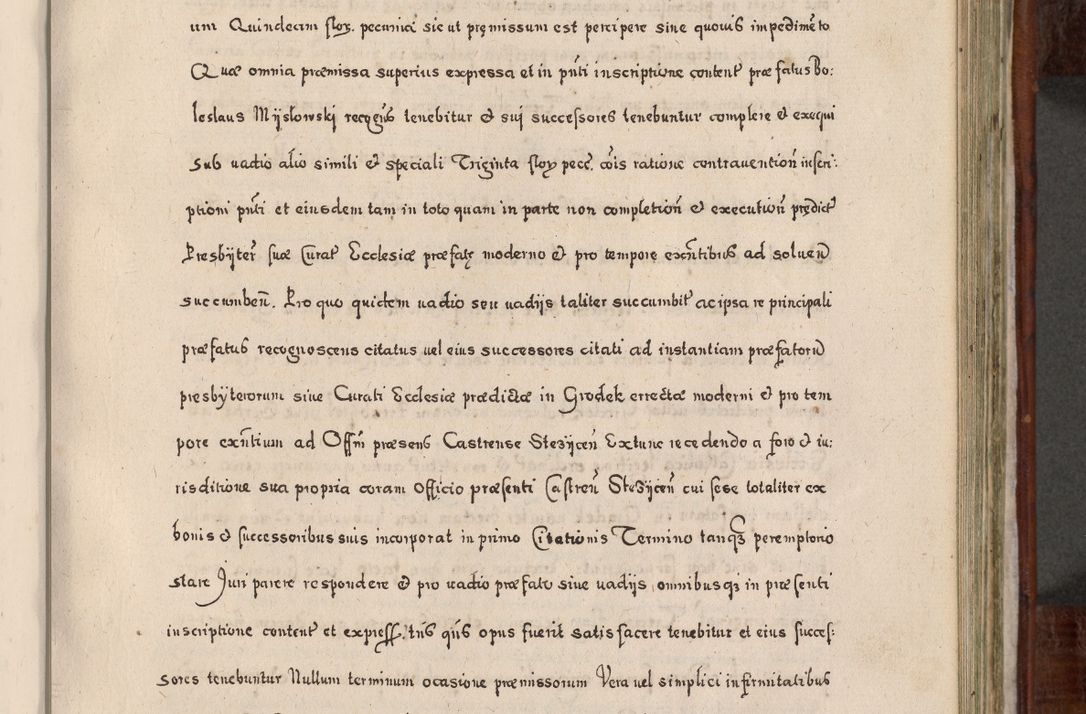 um Quindecim flor. pecuniæ sic ut pręmissum est percipere sine quovis impedimēto
Quæ omnia præmissa superius expressa et in pñti inscriptione content̃ præfatus Bo:
leslaus Mÿslowski recogñs tenebitur & suj successores tenebuntur complere & exequi
sub vadio alio simili & speciali Triginta flor pecc̃. cõis ratione contraventioñ inscri:
ptioni pñti et eiusdem tam in toto quam in parte non completioñ & executioñ prędict̃
Presbÿter̃ suæ Curat̃ Ecclesiæ præfatę moderno & pro tempore exñtibus ad solveñ
succumbeñ. Pro quo quidem vadio seu vadijs taliter succumbit̃ ac ipsa re principali
præfatus recognoscens citatus vel eius successores citati ad instantiam præfatorũ
presbÿterorum sive Curati Ecclesiæ prædictæ in Grodek errectæ moderni & pro tem
pore exñtium ad Offm̃ præsens Castrense Stezÿceñ Extunc recedendo a foro & iu:
risditione sua propria coram Officio præsenti Castreñ Stezÿceñ cui sese totaliter ex
bonis & successoribus suis incorporat in primo Citationis Termino tanq̃ȝ peremptorio
stare Juri parere respondere & pro vadio præfato sive vadijs omnibusqȝ in præsenti
inscriptione content̃ et express. tñs qũs opus fuerit satisfacere tenebitur et eius succes:
sores tenebuntur Nullum terminum ocasione præmissorum Vera vel simplici infirmitatibus